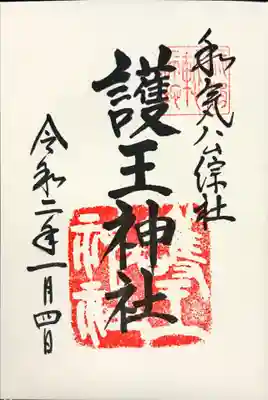 和気公綜社
護王神社
令和二年一月四日